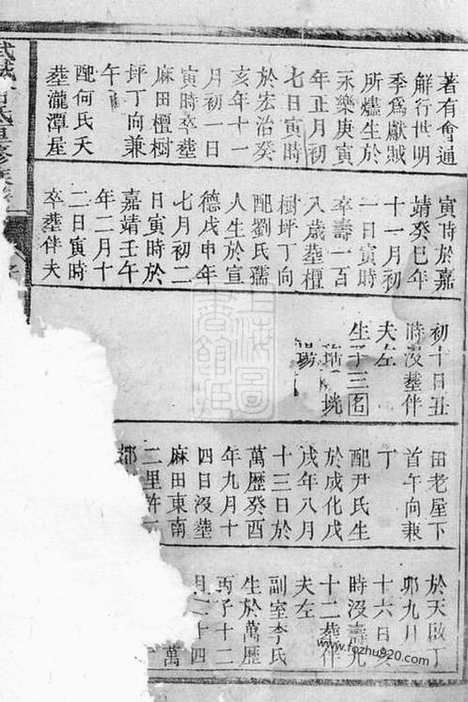 著有會通
解行世明
季爲獻賊
所燼生於
永樂庚寅
年正月初
七日寅時
於宏治癸
亥年十一
月初日
寅時卒葬
麻田檀樹
坪丁向兼
午
配何氏天
葬瀧潭屋
寅時於嘉
靖癸巳年
十一月初
一日寅時
卒壽一百
八歲葬檀
樹坪丁向
配劉氏孺
人生於宣
德戊申年
七月初二
日寅時於
嘉靖壬午
年二月十
二日寅時
卒葬伴夫
初十日丑
時没葬伴
夫左
生子三名
珖
田老屋下
首午向兼
丁
配尹氏生
於成化戊
戌年八月
十三日於
萬歷癸酉
年九月十
四日没葬
麻田東南
二里許
於天啟丁
卯九月
十六日亥
時没壽九
十二葬伴
夫左
副室李氏
生於萬歷
丙子十二
月二十四
萬
上海圖書館藏
www.fozhu920.com